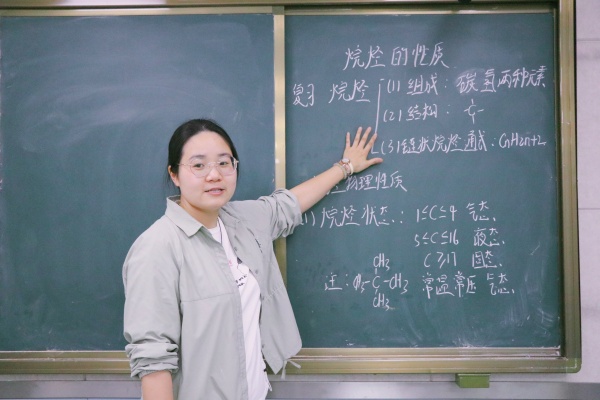 烷烃的性质
复习 烷烃 (1) 组成：碳氢两种元素
(2) 结构：
(3) 链状烷烃通式：CnH2n+2
物理性质
(1) 烷烃状态：1≤C≤4 气态.
5≤C≤16 液态.
C≥17 固态.
CH3
注：CH3-C-CH3 常温常压 气态.
CH3